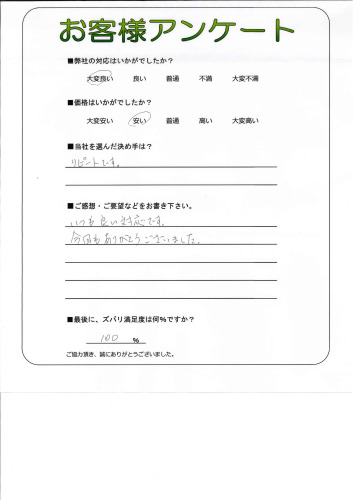 お客様アンケート
■弊社の対応はいかがでしたか?
大変良い 良い 普通 不満 大変不満
■価格はいかがでしたか?
大変安い 安い 普通 高い 大変高い
■当社を選んだ決め手は?
リピートです。
■ご感想・ご要望などをお書き下さい。
いつも良い対応です。
今回もありがとうございました。
■最後に、ズバリ満足度は何%ですか?
100 %
ご協力頂き、誠にありがとうございました。